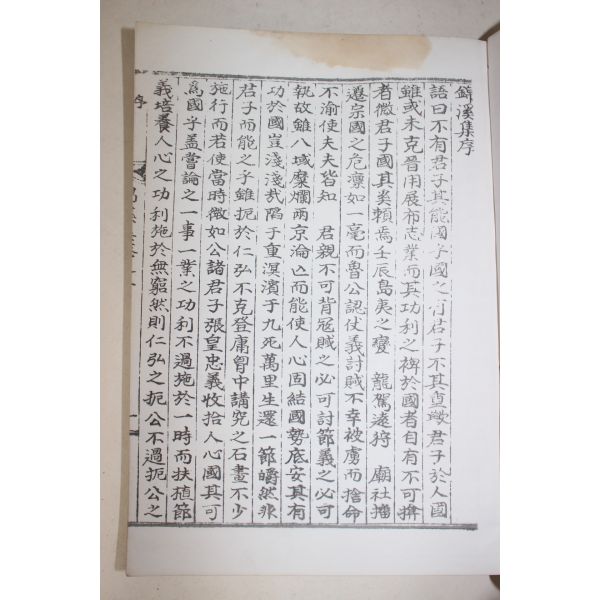 錦溪集序
語曰不有君子其能國乎國之有君子不其重歟君子於人國
雖或未克晉用展布志業而其功利之裨於國者自有不可揜
者微君子國其奚賴焉壬辰島夷之變 龍駕遠狩 廟社播
遷宗國之危凜如一毫而魯公認仗義討賊不幸被虜而捨命
不渝使夫夫皆知 君親不可背冦賊之必可討節義之必可
執故雖八域糜爛兩京淪亡而能使人心固結國勢底安其有
功於國豈淺淺哉陷于重溟濱于九死萬里生還一節皭然非
君子而能之乎雖扼於仁弘不克登庸胷中講究之石畫不少
施行而若使當時微如公諸君子張皇忠義收拾人心國其可
爲國乎盖嘗論之一事一業之功利不過施於一時而扶植節
義培養人心之功利施於無窮然則仁弘之扼公不過扼公之
序